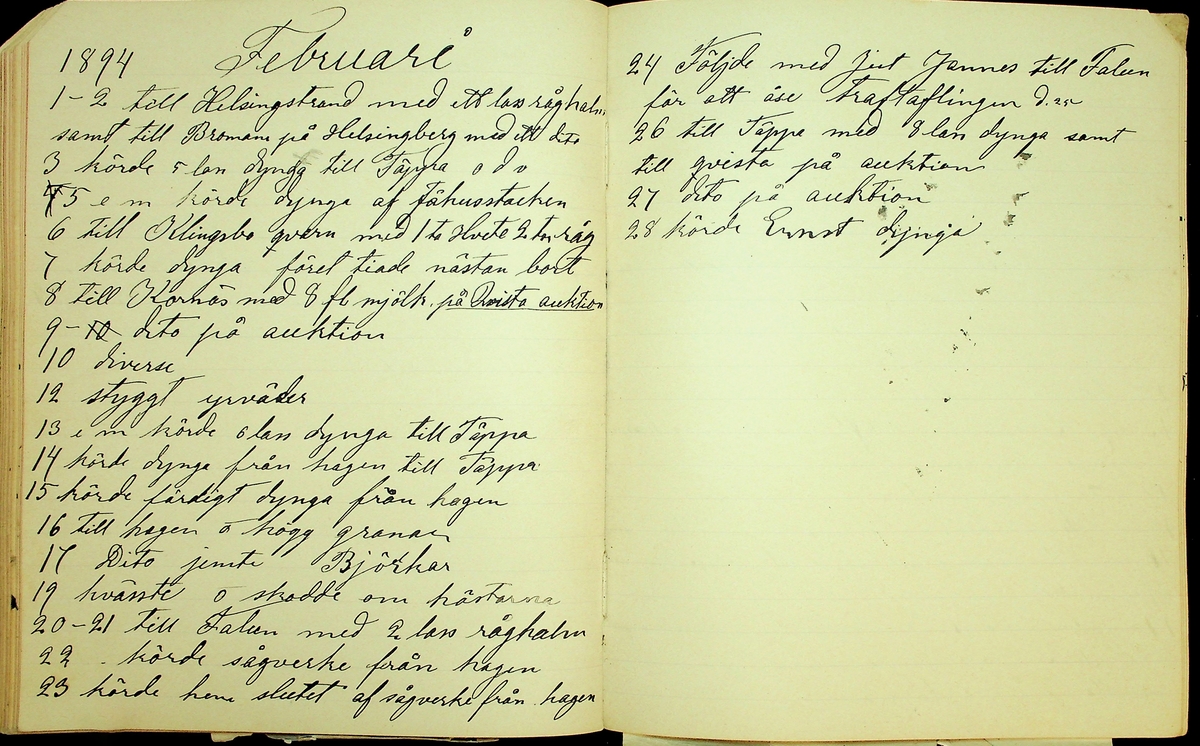 1894 Februari
1-2 till Helsingstrand med ett lass råghalm
samt till Bromans på Helsingberg med ett dito
3 körde 5 lan dynga till Täppa o d v
5 e m körde dynga af fähusstacken
6 till Klingsbo qvarn med 1 ta Hvete 2 tor råg
7 körde dynga föret tiade nästan bort
8 till Kornäs med 8 fl mjölk. på Qvista auktion
9-10 dito på auktion
10 diverse
12 styggt yrväder
13 e m körde 6 lass dynga till Täppa
14 körde dynga från hagen till Täppa
15 körde färdigt dynga från hagen
16 till hagen o högg granar
17 Dito jemte Björkar
19 hvässte o skodde om hästarna
20-21 till Falun med 2 lass råghalm
22 körde sågverke från hagen
23 körde hem slutet af sågverke från hagen
24 Följde med Jut Jannes till Falun
för att åse traftaflingen d. 25
26 till Täppa med 8 lan dynga samt
till qvista på auktion
27 dito på auktion
28 körde Ernst dynga